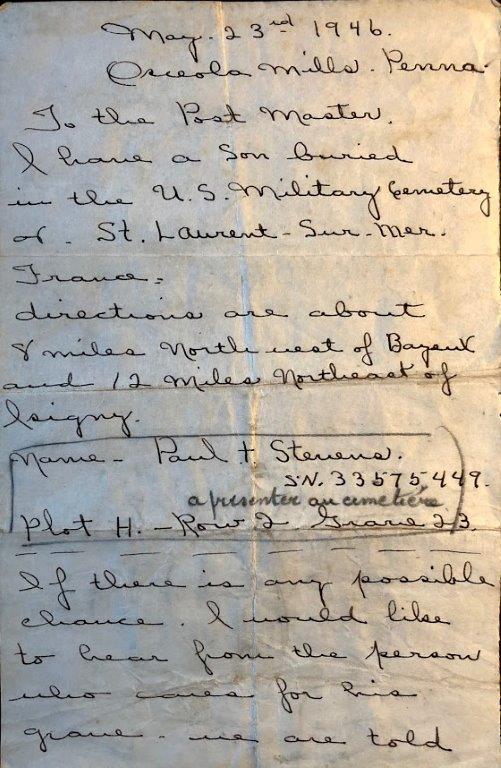 May. 23rd 1946.
Osceola Mills. Penna.
To the Post Master.
I have a Son buried
in the U.S. Military Cemetery
of. St. Laurent-Sur-Mer.
France=
directions are about
8 miles North west of Bayeux
and 12 Miles Northeast of
Isigny.
Name - Paul t Stevens.
SN. 33575449.
a présenter au cimetière
Plot H. - Row 2 Grave 23.
If there is any possible
chance. I would like
to hear from the person
who cares for his
grave. we are told